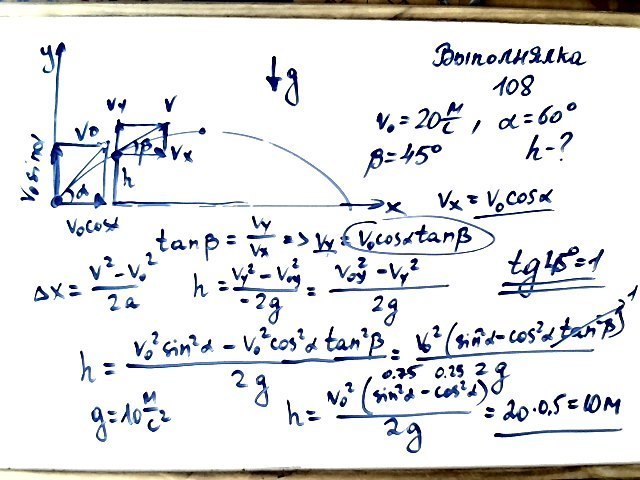 y
↓g
Выполнялка
108
v₀ = 20 м/с, α = 60°
β = 45° h - ?
v₀sinα
v₀
α
v₀cosα
vy
v
β
vx
h
x
vx = v₀cosα
tanβ = vy/vx => vy = v₀cosα tanβ
tg45° = 1
Δx = (v² - v₀²)/2a
h = (vy² - v₀y²)/-2g = (v₀y² - vy²)/2g
h = (v₀²sin²α - v₀²cos²α tan²β)/2g = v₀²(sin²α - cos²α tan²β)/2g
1
0.75 0.25
g = 10 м/с²
h = v₀²(sin²α - cos²α)/2g = 20·0.5 = 10м